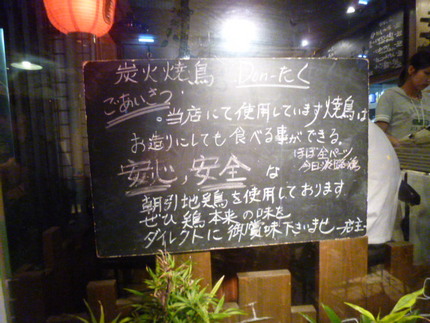 炭火焼鳥 Don-たく
ごあいさつ
。当店にて使用しています焼鳥は
お造りにしても食べる事ができる。
ほぼ全パーツ
今日淡路鶏
安心、安全な
朝引地鶏を使用しております
ぜひ鶏本来の味を
ダイレクトに御賞味下さいませ 店主